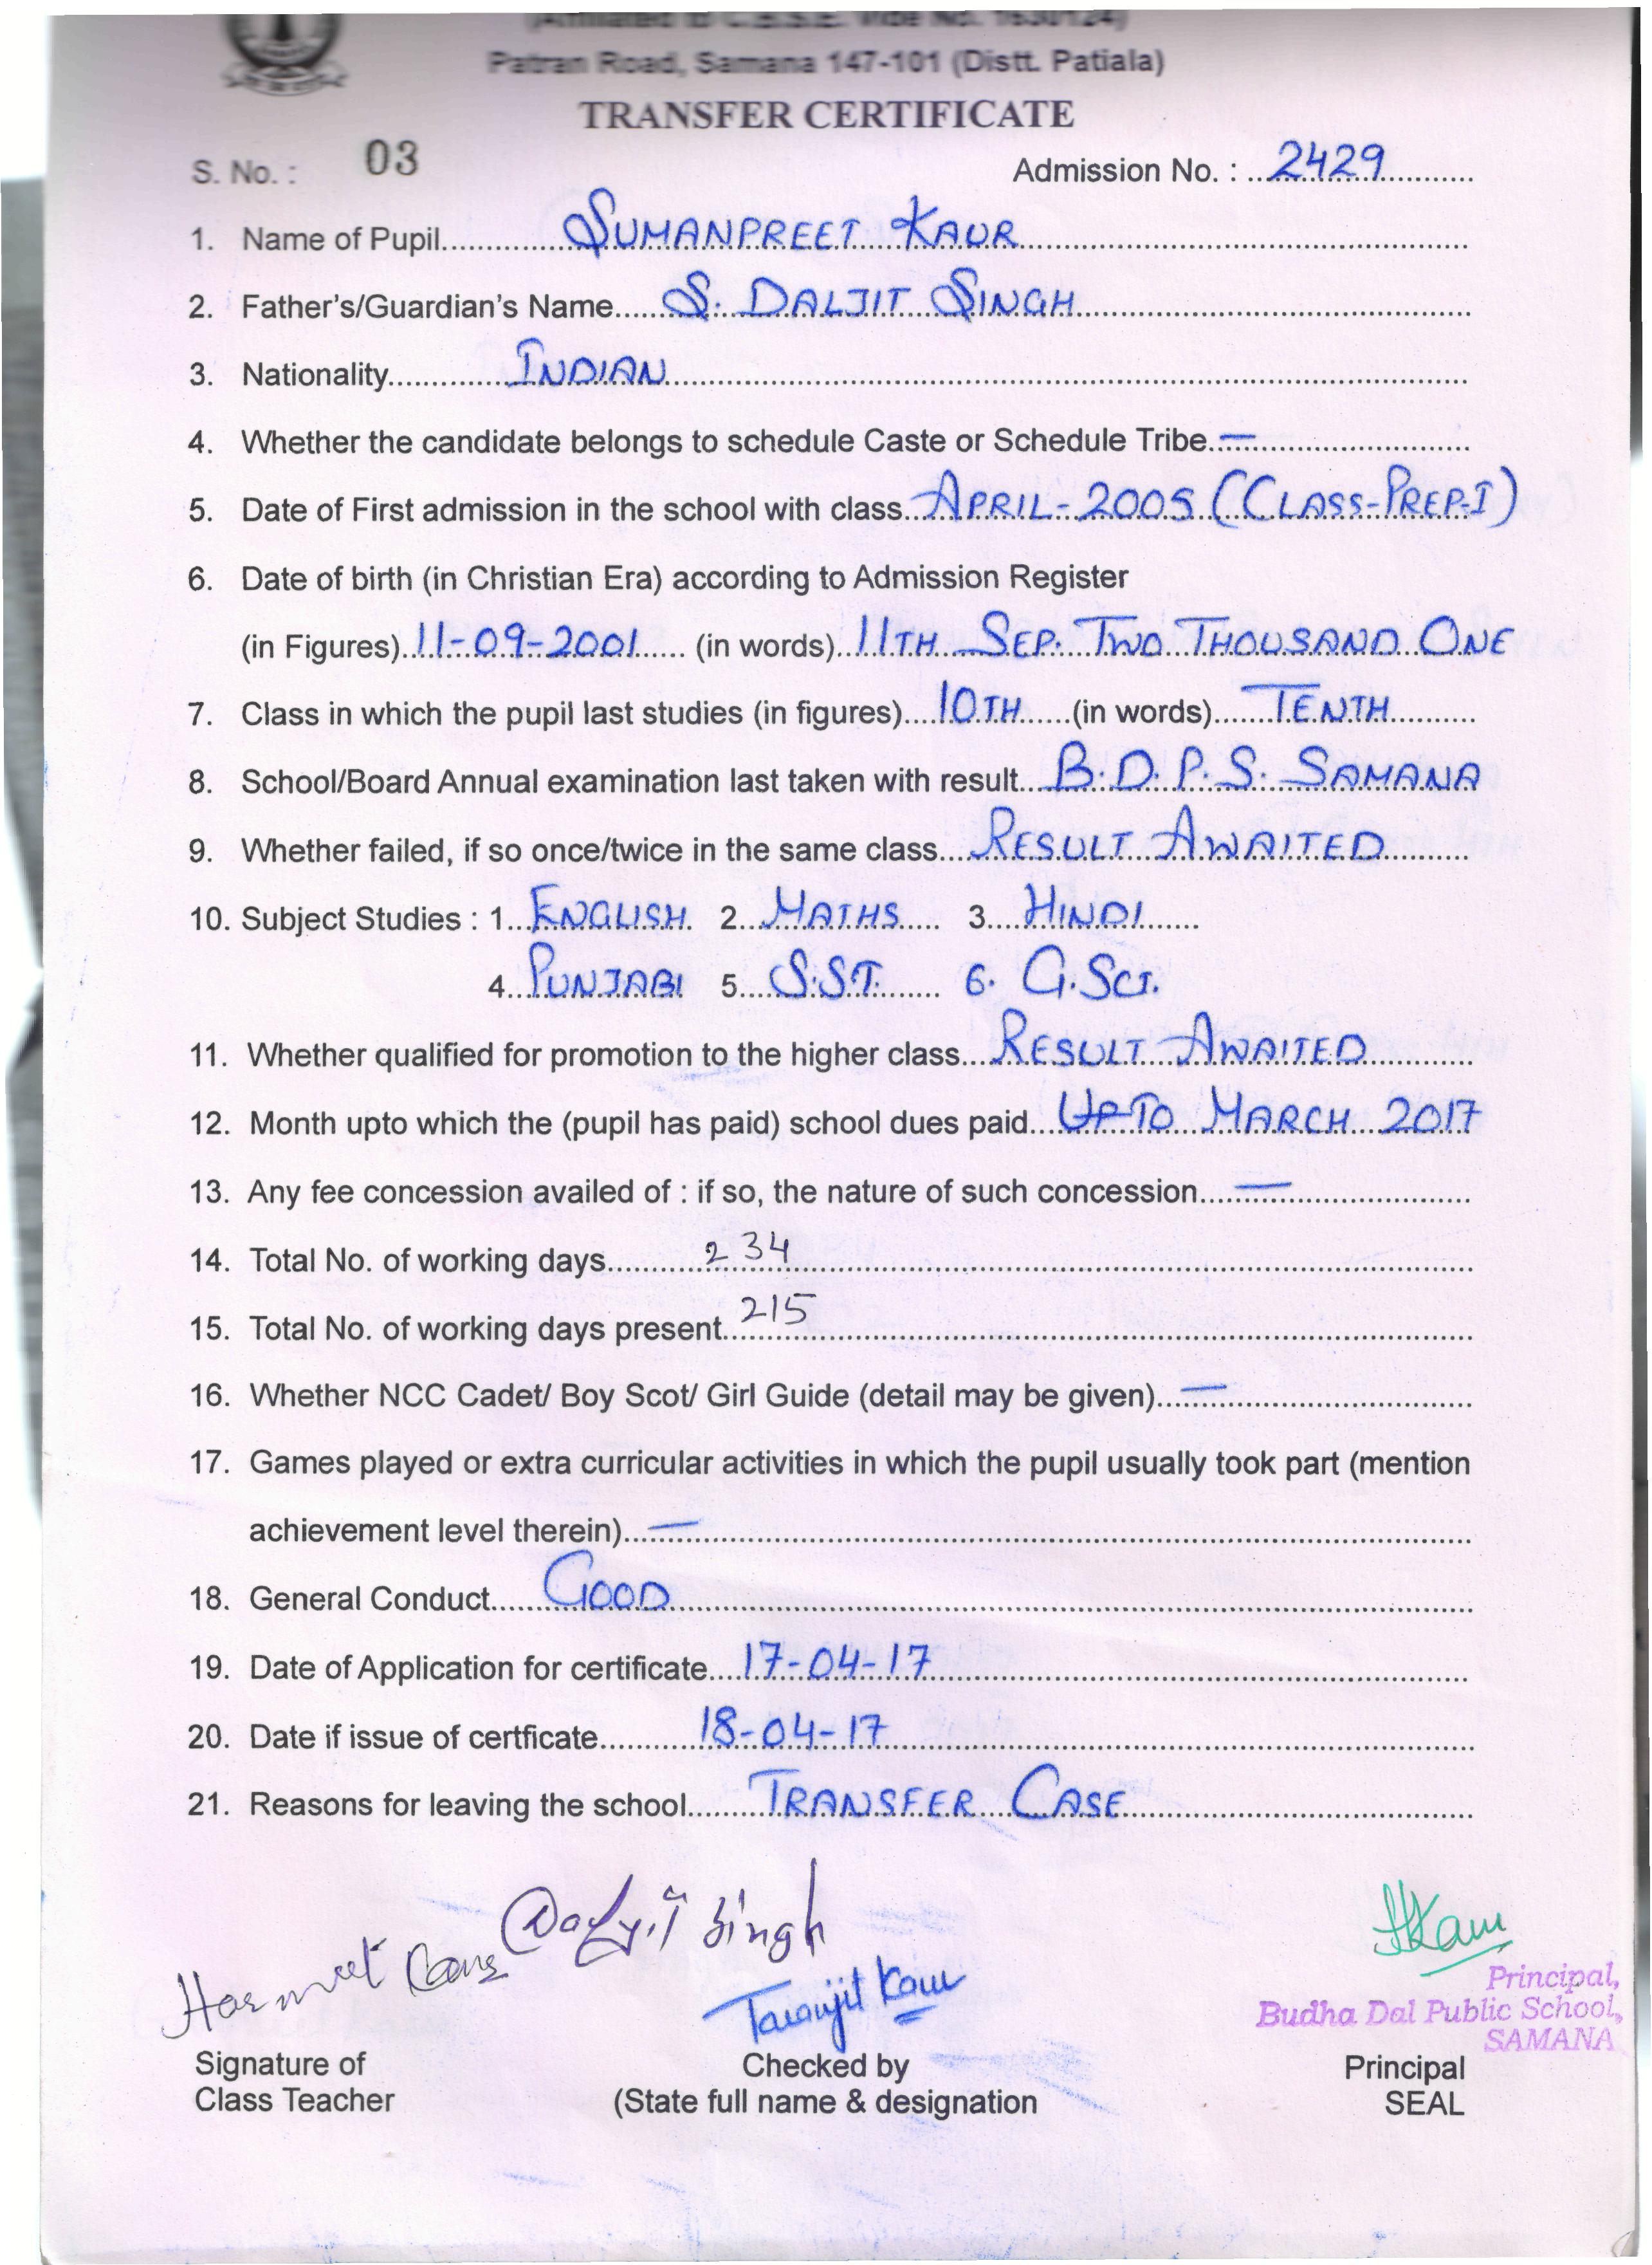 (Affiliated to C.B.S.E. Vide No. 1630124)
Patran Road, Samana 147-101 (Distt. Patiala)
TRANSFER CERTIFICATE
S. No. : 03 Admission No. : 2429
1. Name of Pupil SUMANPREET KAUR
2. Father's/Guardian's Name S. DALJIT SINGH
3. Nationality INDIAN
4. Whether the candidate belongs to schedule Caste or Schedule Tribe. —
5. Date of First admission in the school with class APRIL-2005 (CLASS-PREP-I)
6. Date of birth (in Christian Era) according to Admission Register
(in Figures) 11-09-2001 (in words) 11TH SEP. TWO THOUSAND ONE
7. Class in which the pupil last studies (in figures) 10TH (in words) TENTH
8. School/Board Annual examination last taken with result B.D.P.S. SAMANA
9. Whether failed, if so once/twice in the same class RESULT AWAITED
10. Subject Studies : 1. ENGLISH 2. MATHS 3. HINDI
4. PUNJABI 5. S.ST. 6. G.SCI.
11. Whether qualified for promotion to the higher class RESULT AWAITED
12. Month upto which the (pupil has paid) school dues paid UPTO MARCH 2017
13. Any fee concession availed of : if so, the nature of such concession —
14. Total No. of working days 234
15. Total No. of working days present 215
16. Whether NCC Cadet/ Boy Scot/ Girl Guide (detail may be given) —
17. Games played or extra curricular activities in which the pupil usually took part (mention
achievement level therein) —
18. General Conduct GOOD
19. Date of Application for certificate 17-04-17
20. Date if issue of certficate 18-04-17
21. Reasons for leaving the school TRANSFER CASE
Harmeet Kaur Daljit Singh
Taranjit Kaur
Kaur
Principal,
Budha Dal Public School,
SAMANA
Signature of Checked by Principal
Class Teacher (State full name & designation SEAL